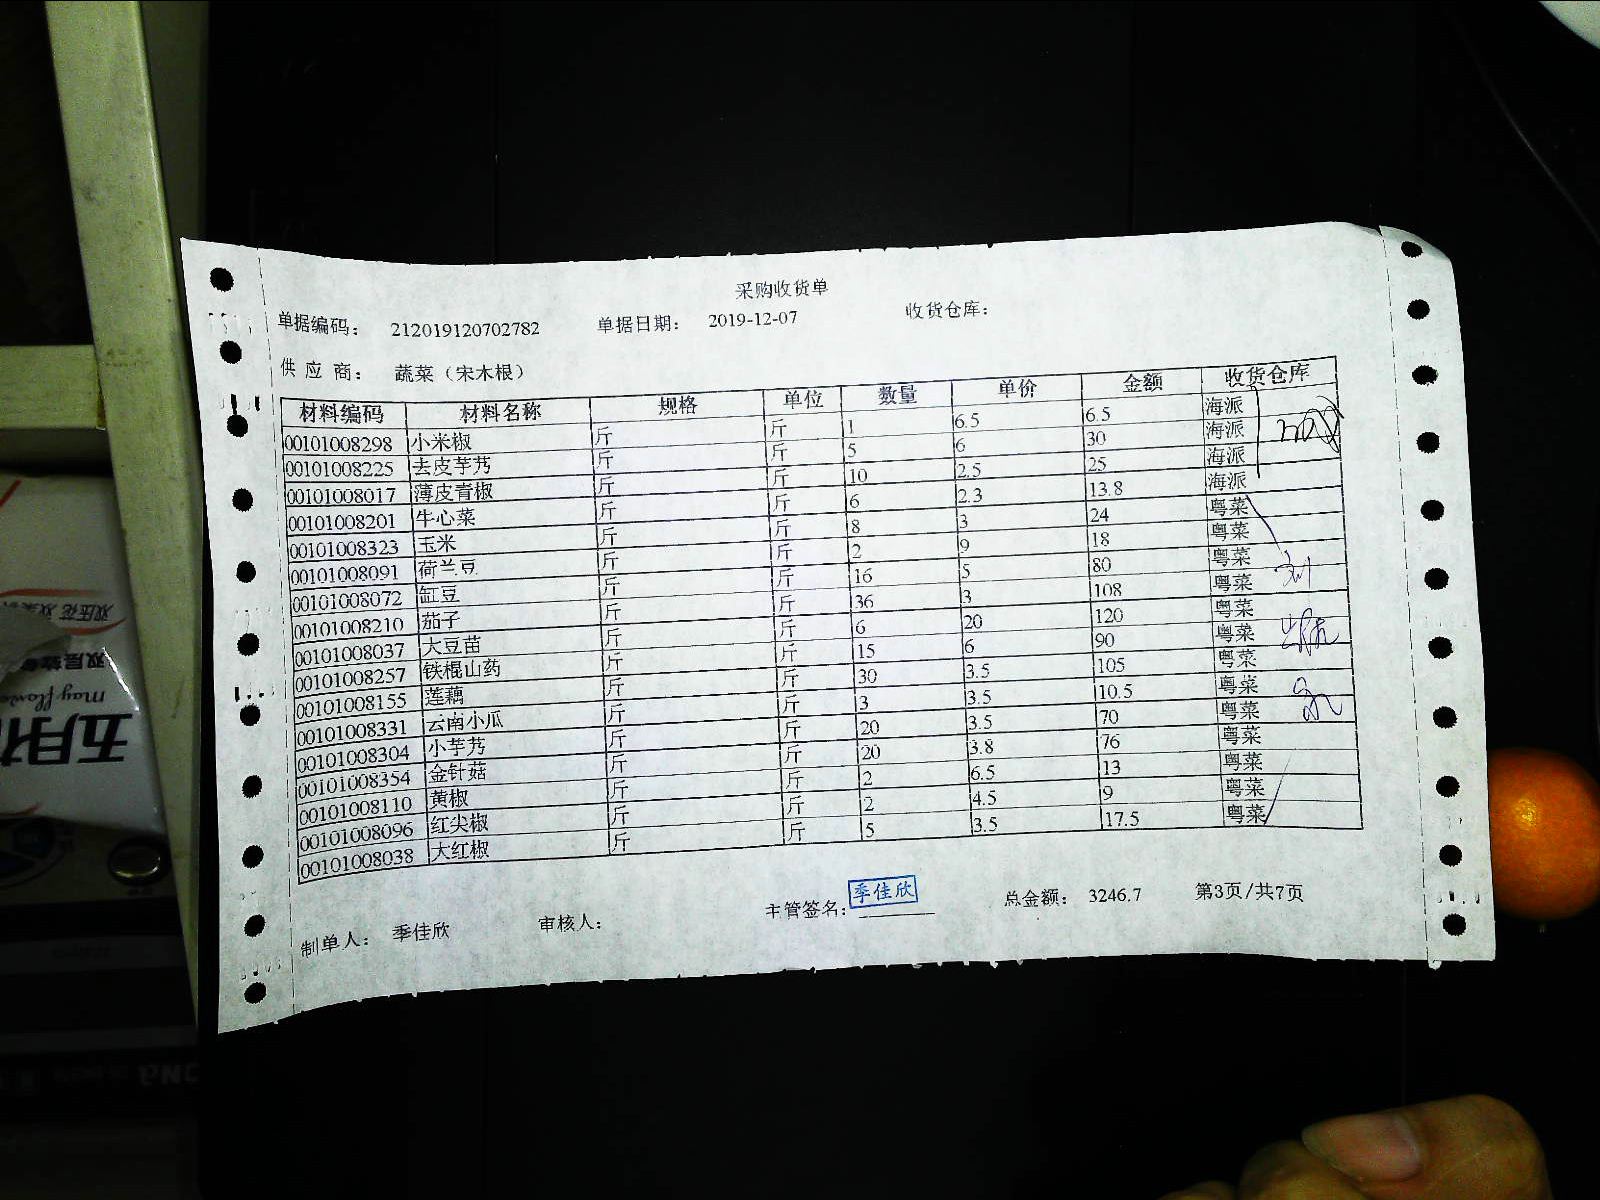 采购收货单
单据编码： 212019120702782 单据日期： 2019-12-07 收货仓库：
供 应 商： 蔬菜（宋木根）
材料编码 材料名称 规格 单位 数量 单价 金额 收货仓库
00101008298 小米椒 斤 斤 1 6.5 6.5 海派
00101008225 去皮芋艿 斤 斤 5 6 30 海派
00101008017 薄皮青椒 斤 斤 10 2.5 25 海派
00101008201 牛心菜 斤 斤 6 2.3 13.8 海派
00101008323 玉米 斤 斤 8 3 24 粤菜
00101008091 荷兰豆 斤 斤 2 9 18 粤菜
00101008072 缸豆 斤 斤 16 5 80 粤菜
00101008210 茄子 斤 斤 36 3 108 粤菜
00101008037 大豆苗 斤 斤 6 20 120 粤菜
00101008257 铁棍山药 斤 斤 15 6 90 粤菜
00101008155 莲藕 斤 斤 30 3.5 105 粤菜
00101008331 云南小瓜 斤 斤 3 3.5 10.5 粤菜
00101008304 小芋艿 斤 斤 20 3.5 70 粤菜
00101008354 金针菇 斤 斤 20 3.8 76 粤菜
00101008110 黄椒 斤 斤 2 6.5 13 粤菜
00101008096 红尖椒 斤 斤 2 4.5 9 粤菜
00101008038 大红椒 斤 斤 5 3.5 17.5 粤菜
制单人： 季佳欣 审核人： 主管签名： 季佳欣 总金额： 3246.7 第3页/共7页
双层
may flower
五月花